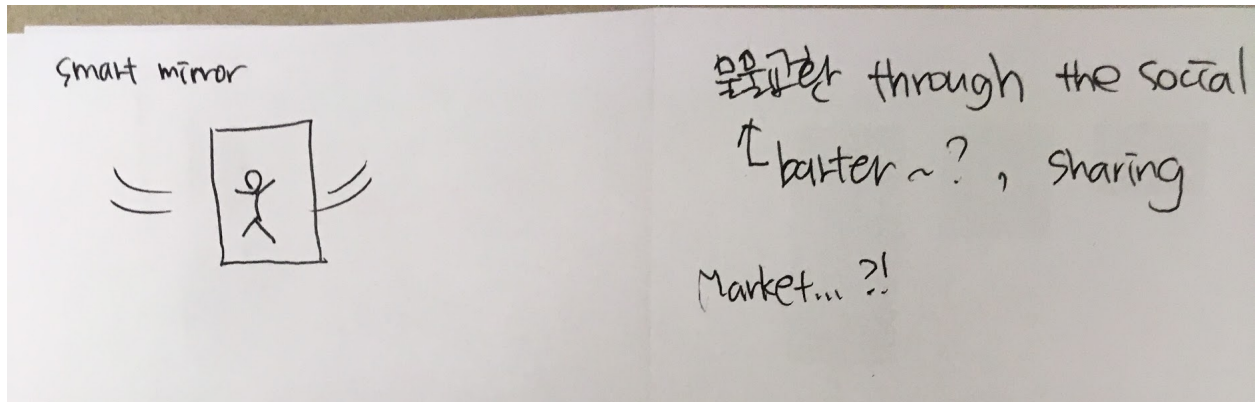 smart mirror
물물교환 through the social
barter ~?, sharing
Market... ?!